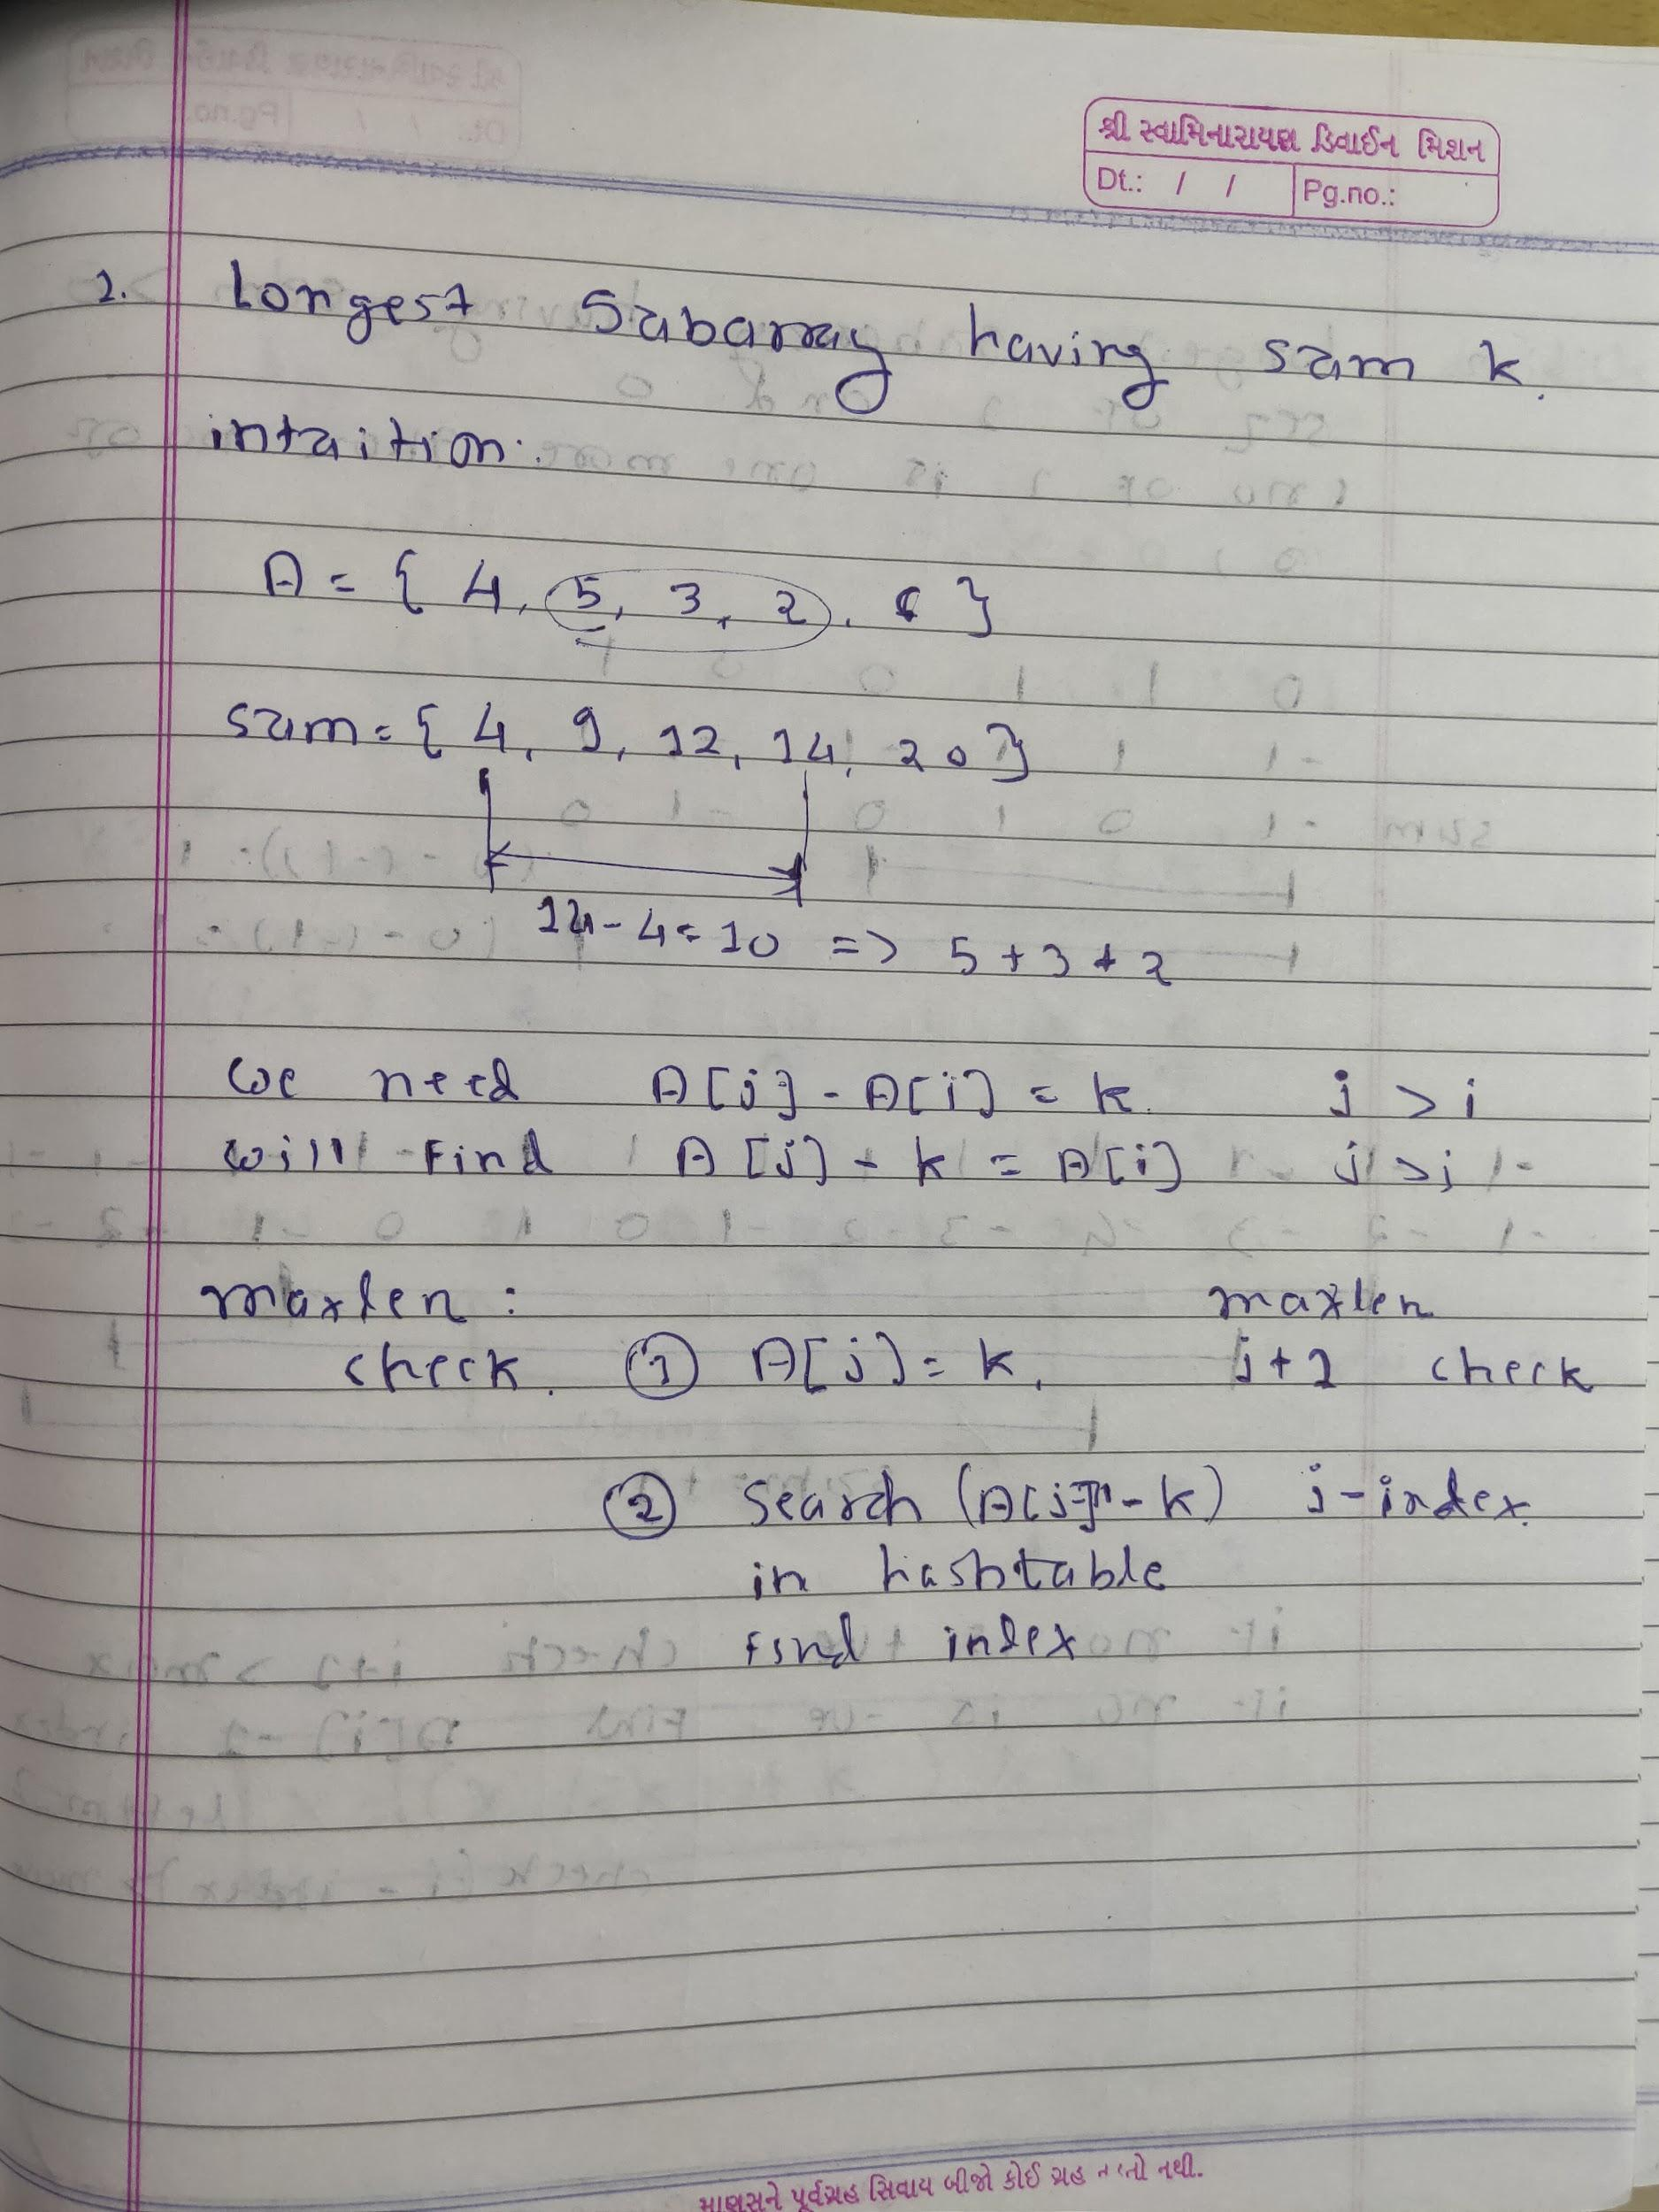 શ્રી સ્વામિનારાયણ ડિવાઈન મિશન
Dt.: / / Pg.no.:
1. Longest Subarray having sum k.
intuition:
A = { 4, 5, 3, 2, 6 }
sum = { 4, 9, 12, 14, 20 }
14 - 4 = 10 => 5 + 3 + 2
we need A[j] - A[i] = k. j > i
will find A[j] - k = A[i] j > i
maxlen : maxlen
check. ① A[j] = k, j+1 check
② Search (A[j] - k) j - index.
in hashtable
find index
માણસને પૂર્વગ્રહ સિવાય બીજો કોઈ ગ્રહ નથી.